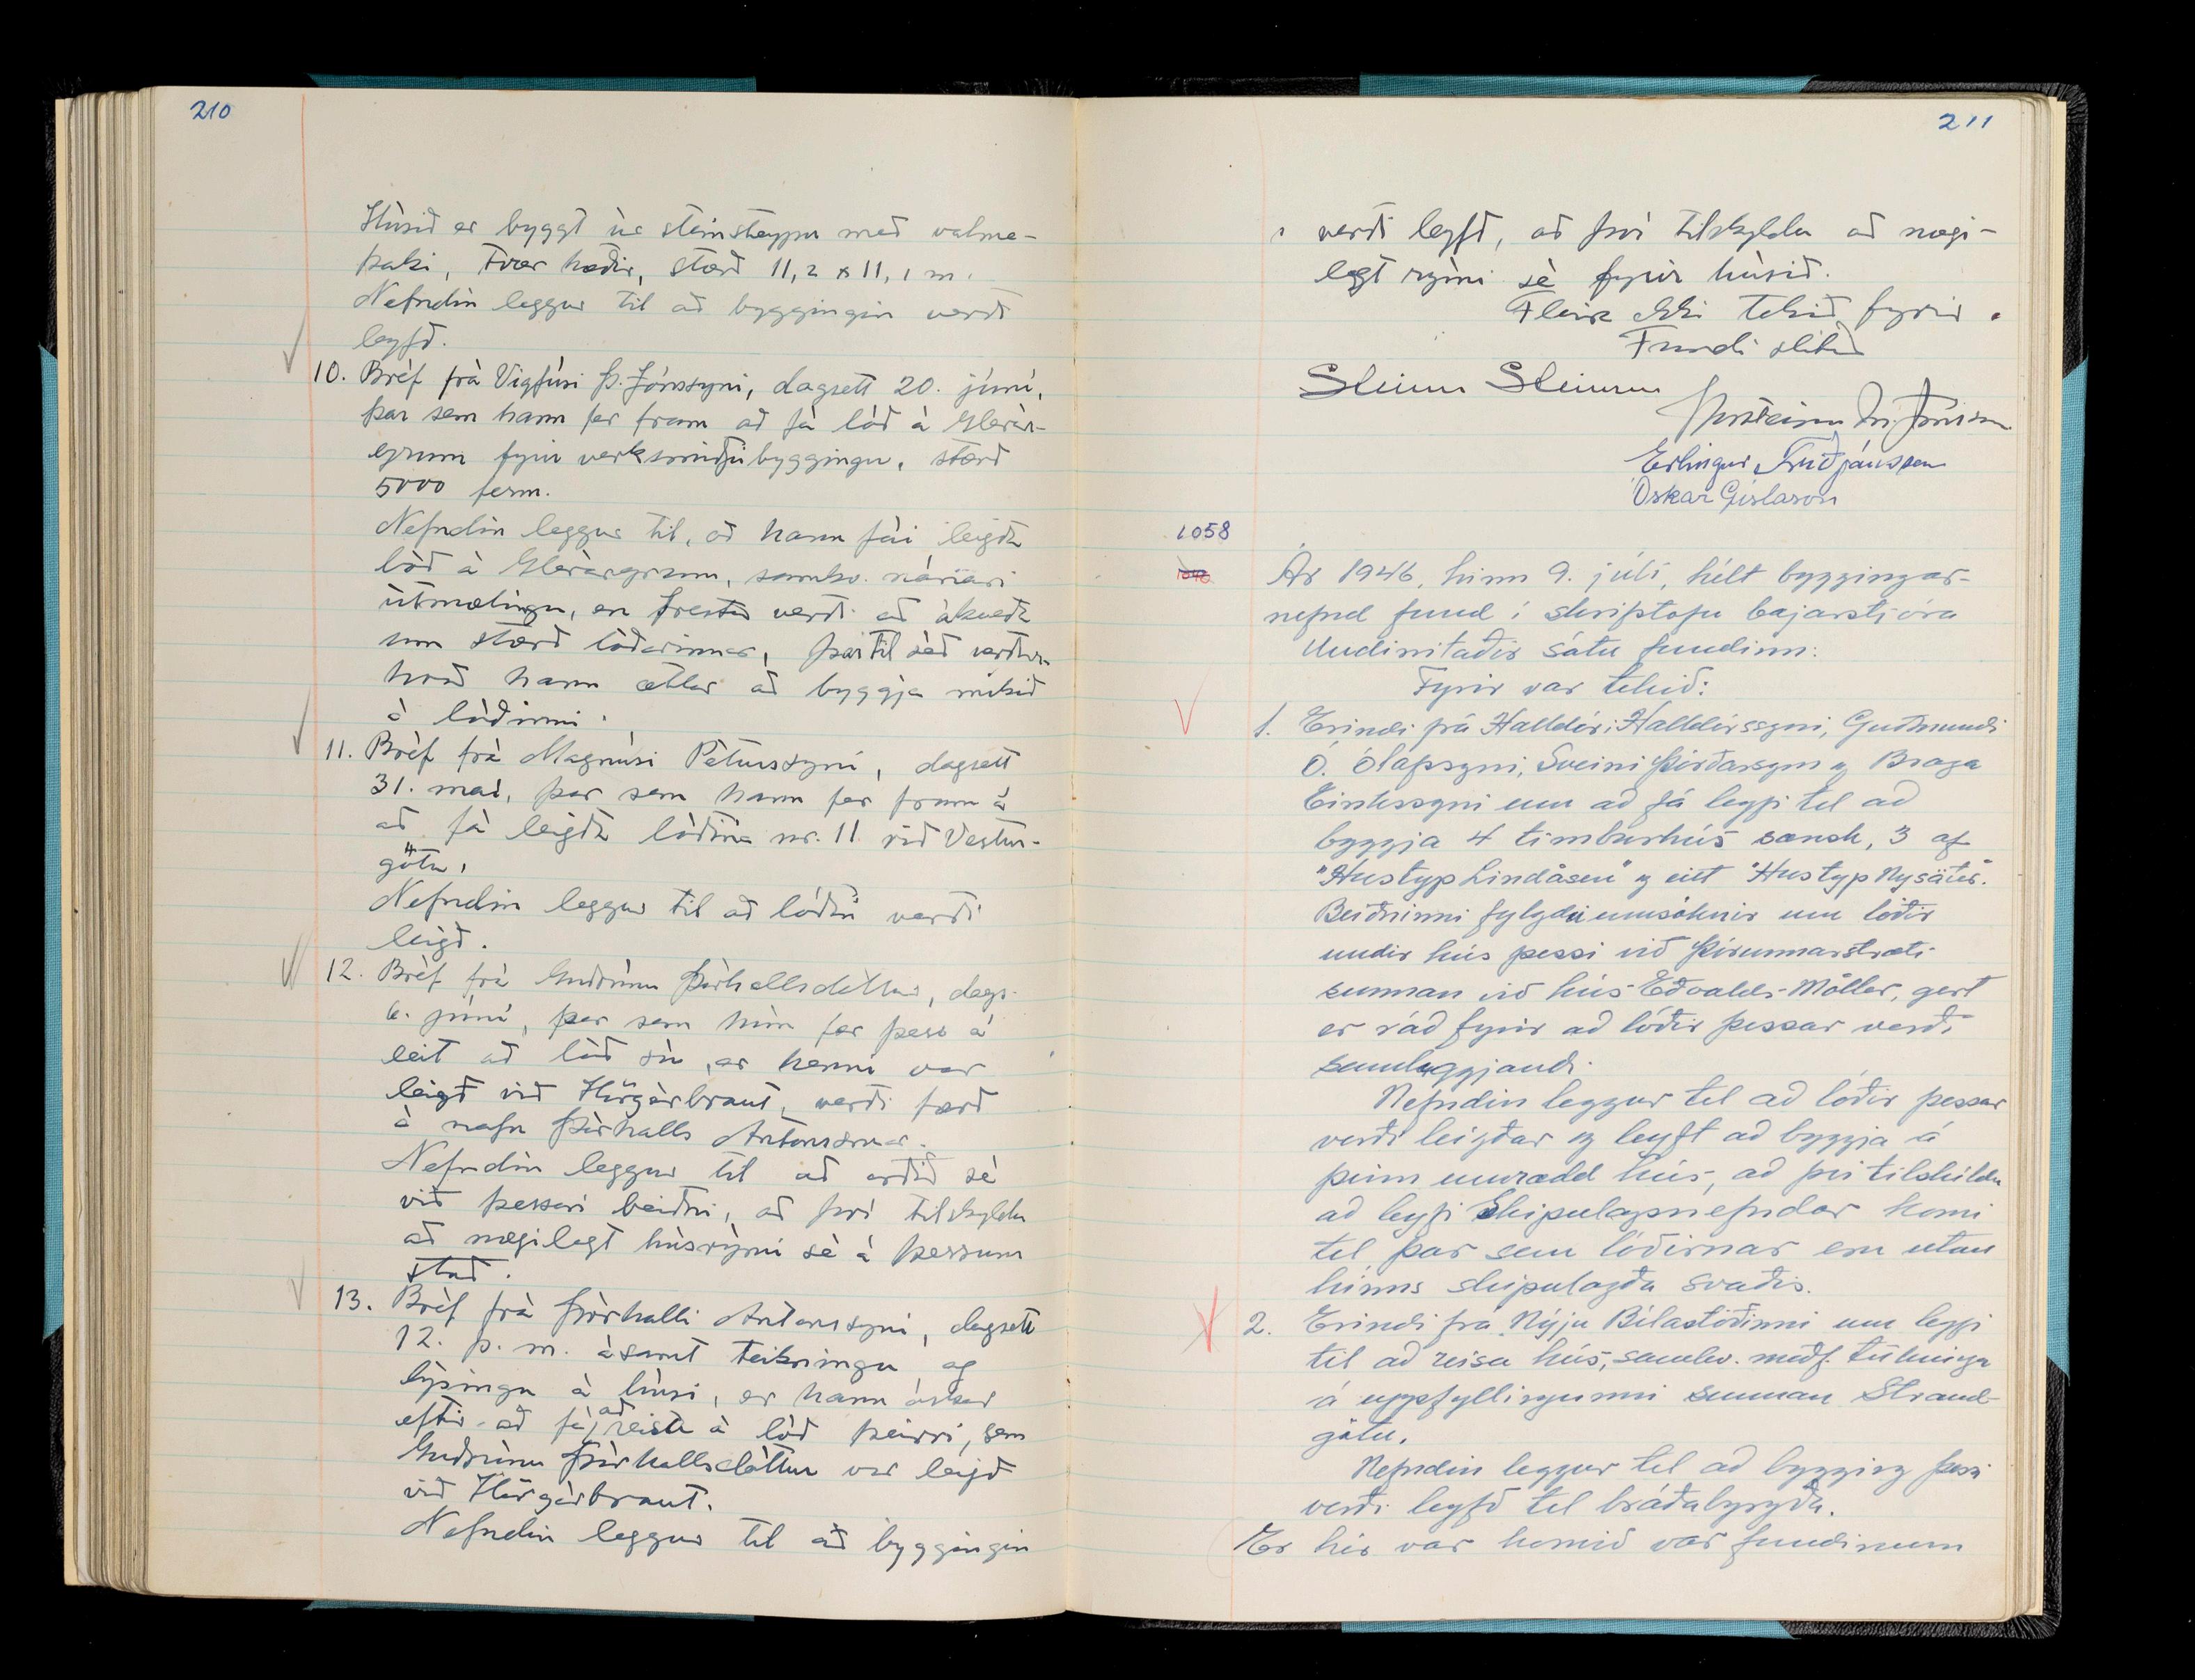 210
Húsið er byggt úr steinsteypu með valma-
þaki, tvær hæðir, stærð 11,2 x 11,1 m.
Nefndin leggur til að byggingin verði
leyfð.
10. Bréf frá Vigfúsi Þ. Jónssyni, dagsett 20. júní,
þar sem hann fer fram að fá lóð á Glerár-
eyrum fyrir verksmiðjubyggingu, stærð
5000 ferm.
Nefndin leggur til, að hann fái leigða
lóð á Gleráreyrum, samkv. nánari
útmælingu, en frestað verði að ákveða
um stærð lóðarinnar, þar til séð verður
hvað hann ætlar að byggja mikið
á lóðinni.
11. Bréf frá Magnúsi Péturssyni, dagsett
31. maí, þar sem hann fer fram á
að fá leigða lóðina nr. 11 við Vestur-
götu.
Nefndin leggur til að lóðin verði
leigð.
12. Bréf frá Guðrúnu Þórhallsdóttur, dags.
6. júní, þar sem hún fer þess á
leit að lóð sú, er henni var
leigð við Hörgárbraut, verði færð
á nafn Þórhalls Antonssonar.
Nefndin leggur til að orðið sé
við þessari beiðni, að því tilskyldu
að nægilegt húsrými sé á þessum
stað.
13. Bréf frá Þórhalli Antonssyni, dagsett
12. þ. m. ásamt teikningu og
lýsingu á húsi, er hann óskar
eftir að fá að reisa á lóð þeirri, sem
Guðrúnu Þórhallsdóttur var leigð
við Hörgárbraut.
Nefndin leggur til að byggingin
211
verði leyfð, að því tilskyldu að nægi-
legt rými sé fyrir húsið.
Fleira ekki tekið fyrir.
Fundi slitið
Steinn Steinsen
Þorsteinn M. Jónsson
Erlingur Friðjónsson
Óskar Gíslason
1058
Ár 1946, hinn 9. júlí, hélt byggingar-
nefnd fund í skrifstofu bæjarstjóra
Undirritaðir sátu fundinn:
Fyrir var tekið:
1. Erindi frá Halldóri Halldórssyni, Guðmundi
Ó. Ólafssyni, Sveini Þórðarsyni og Braga
Eiríkssyni um að fá leyfi til að
byggja 4 timburhús sænsk, 3 af
"Hustyp Lindåsen" og eitt "Hustyp Nysäter".
Beiðninni fylgdu umsóknir um lóðir
undir hús þessi við Þórunnarstræti
sunnan við hús Eðvalds Möller, gert
er ráð fyrir að lóðir þessar verði
samliggjandi.
Nefndin leggur til að lóðir þessar
verði leigðar og leyft að byggja á
þeim umrædd hús, að því tilskildu
að leyfi Skipulagsnefndar komi
til þar sem lóðirnar eru utan
hinns skipulagða svæðis.
2. Erindi frá Nýju Bílastöðinni um leyfi
til að reisa hús, samkv. meðf. teikningu
á uppfyllingunni sunnan Strand-
götu.
Nefndin leggur til að bygging þessi
verði leyfð til bráðabyrgða.
Er hér var komið var fundinum